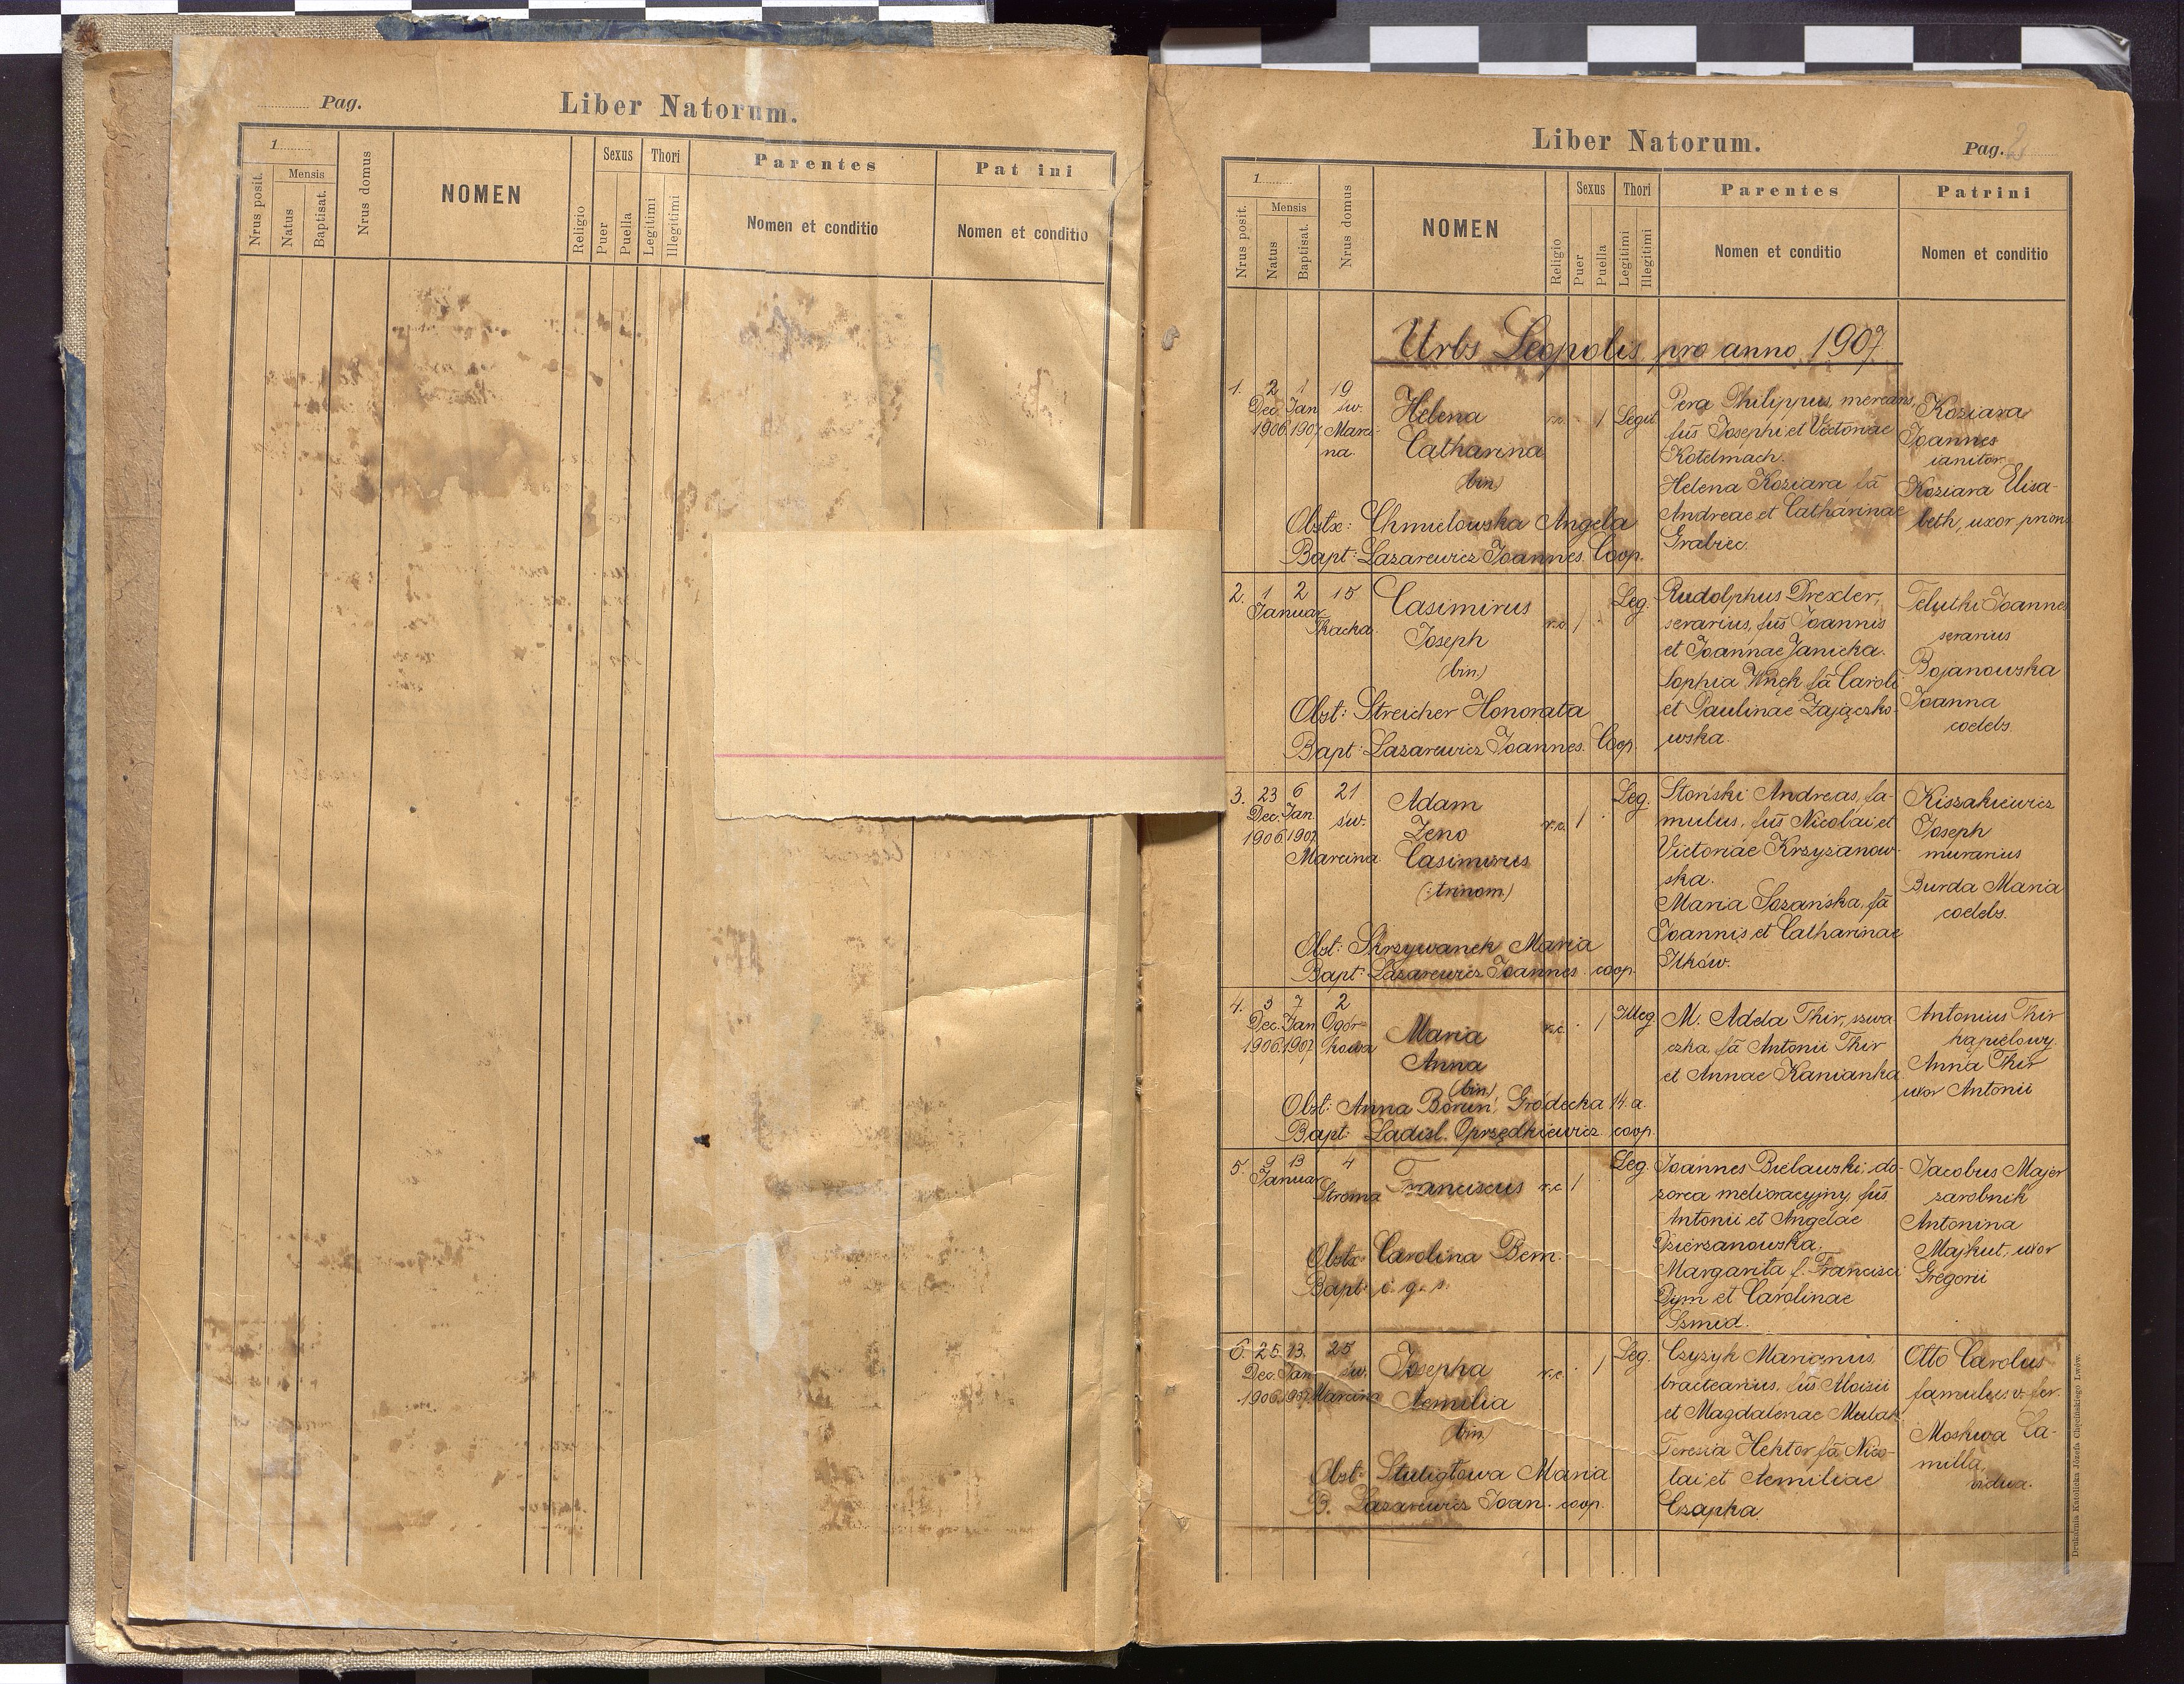 Pag.
Liber Natorum.
1
Nrus posit.
Mensis
Natus
Baptisat.
Nrus domus
NOMEN
Religio
Sexus
Puer
Puella
Thori
Legitimi
Illegitimi
Parentes
Nomen et conditio
Pat ini
Nomen et conditio
Liber Natorum.
Pag. 2
1
Nrus posit.
Mensis
Natus
Baptisat.
Nrus domus
NOMEN
Religio
Sexus
Puer
Puella
Thori
Legitimi
Illegitimi
Parentes
Nomen et conditio
Patrini
Nomen et conditio
Urbs Leopolis pro anno 1907
1. 2 1 19
Dec. Jan św.
1906 1907 Marci-
na
Helena
Catharina
(bin)
r.c. - 1 Legit
Obstx: Chmielowska Angela
Bapt: Lazarewicz Joannes. Coop.
Pera Philippus, mercans,
fus Josephi et Victoriae
Kotelmach.
Helena Koziara fa
Andreae et Catharinae
Grabiec.
Koziara
Joannes
ianitor
Koziara Elisa-
beth, uxor prioris
2. 1 2 15
Januar
Tkacka
Casimirus
Joseph
(bin)
r.c. 1 Leg.
Obst: Streicher Honorata
Bapt: Lazarewicz Joannes. Coop.
Rudolphus Drexler,
serarius, fus Joannis
et Joannae Janicka.
Sophia Wnęk fa Caroli
et Paulinae Zajączko-
wska.
Joannes
serarius
Bojanowska
Joanna
coelebs.
3. 23 6 21
Dec. Jan. św.
1906 1907
Marcina
Adam
Zeno
Casimirus
(trinom.)
r.c. 1 Leg.
Obst: Skrzywanek Maria
Bapt: Lazarewicz Joannes coop.
Słoński Andreas, fa-
mulus, fus Nicolai et
Victoriae Krzyżanow-
ska.
Maria Sozańska, fa
Joannis et Catharinae
Ilków.
Kiszakiewicz
Joseph
murarius
Burda Maria
coelebs.
4. 3 7 2
Dec. Jan Ogór-
1906 1907 kowa
Maria
Anna
(bin)
r.c. 1 Illeg.
Obst: Anna Borun, Gródecka 14. a.
Bapt: Ladisl. Oprzędkiewicz coop.
M. Adela Thir, szwa-
czka, fa Antonii Thir
et Annae Kanianka
Antonius Thir
kąpielowy.
Anna Thir
uxor Antonii
5. 9 13 4
Januar
Stroma
Franciscus
r.c. 1 Leg.
Obstx: Carolina Bem.
Bapt:
Joannes Bielawski, do-
zorca melioracyjny, fus
Antonii et Angelae
Dzierżanowska.
Margarita f. Francisci
Dym et Carolinae
Szmid.
Jacobus Majer
zarobnik
Antonina
Majkut, uxor
Gregorii
6. 25 13. 25
Dec. Jan św.
1906 1907 Marcina
Josepha
Aemilia
bin)
r.c. 1 Leg.
Obst: Stuligłowa Maria
B. Lazarewicz Joan. coop.
Czyżyk Marianus,
bractearius, fus Aloisii
et Magdalenae Mulak
Teresia Hektor fa Nico-
lai et Aemiliae
Czapka
Otto Carolus
famulus v. fer.
Moskwa Ca-
milla,
vidua.
Drukarnia Katolicka Józefa Chęcińskiego Lwów.